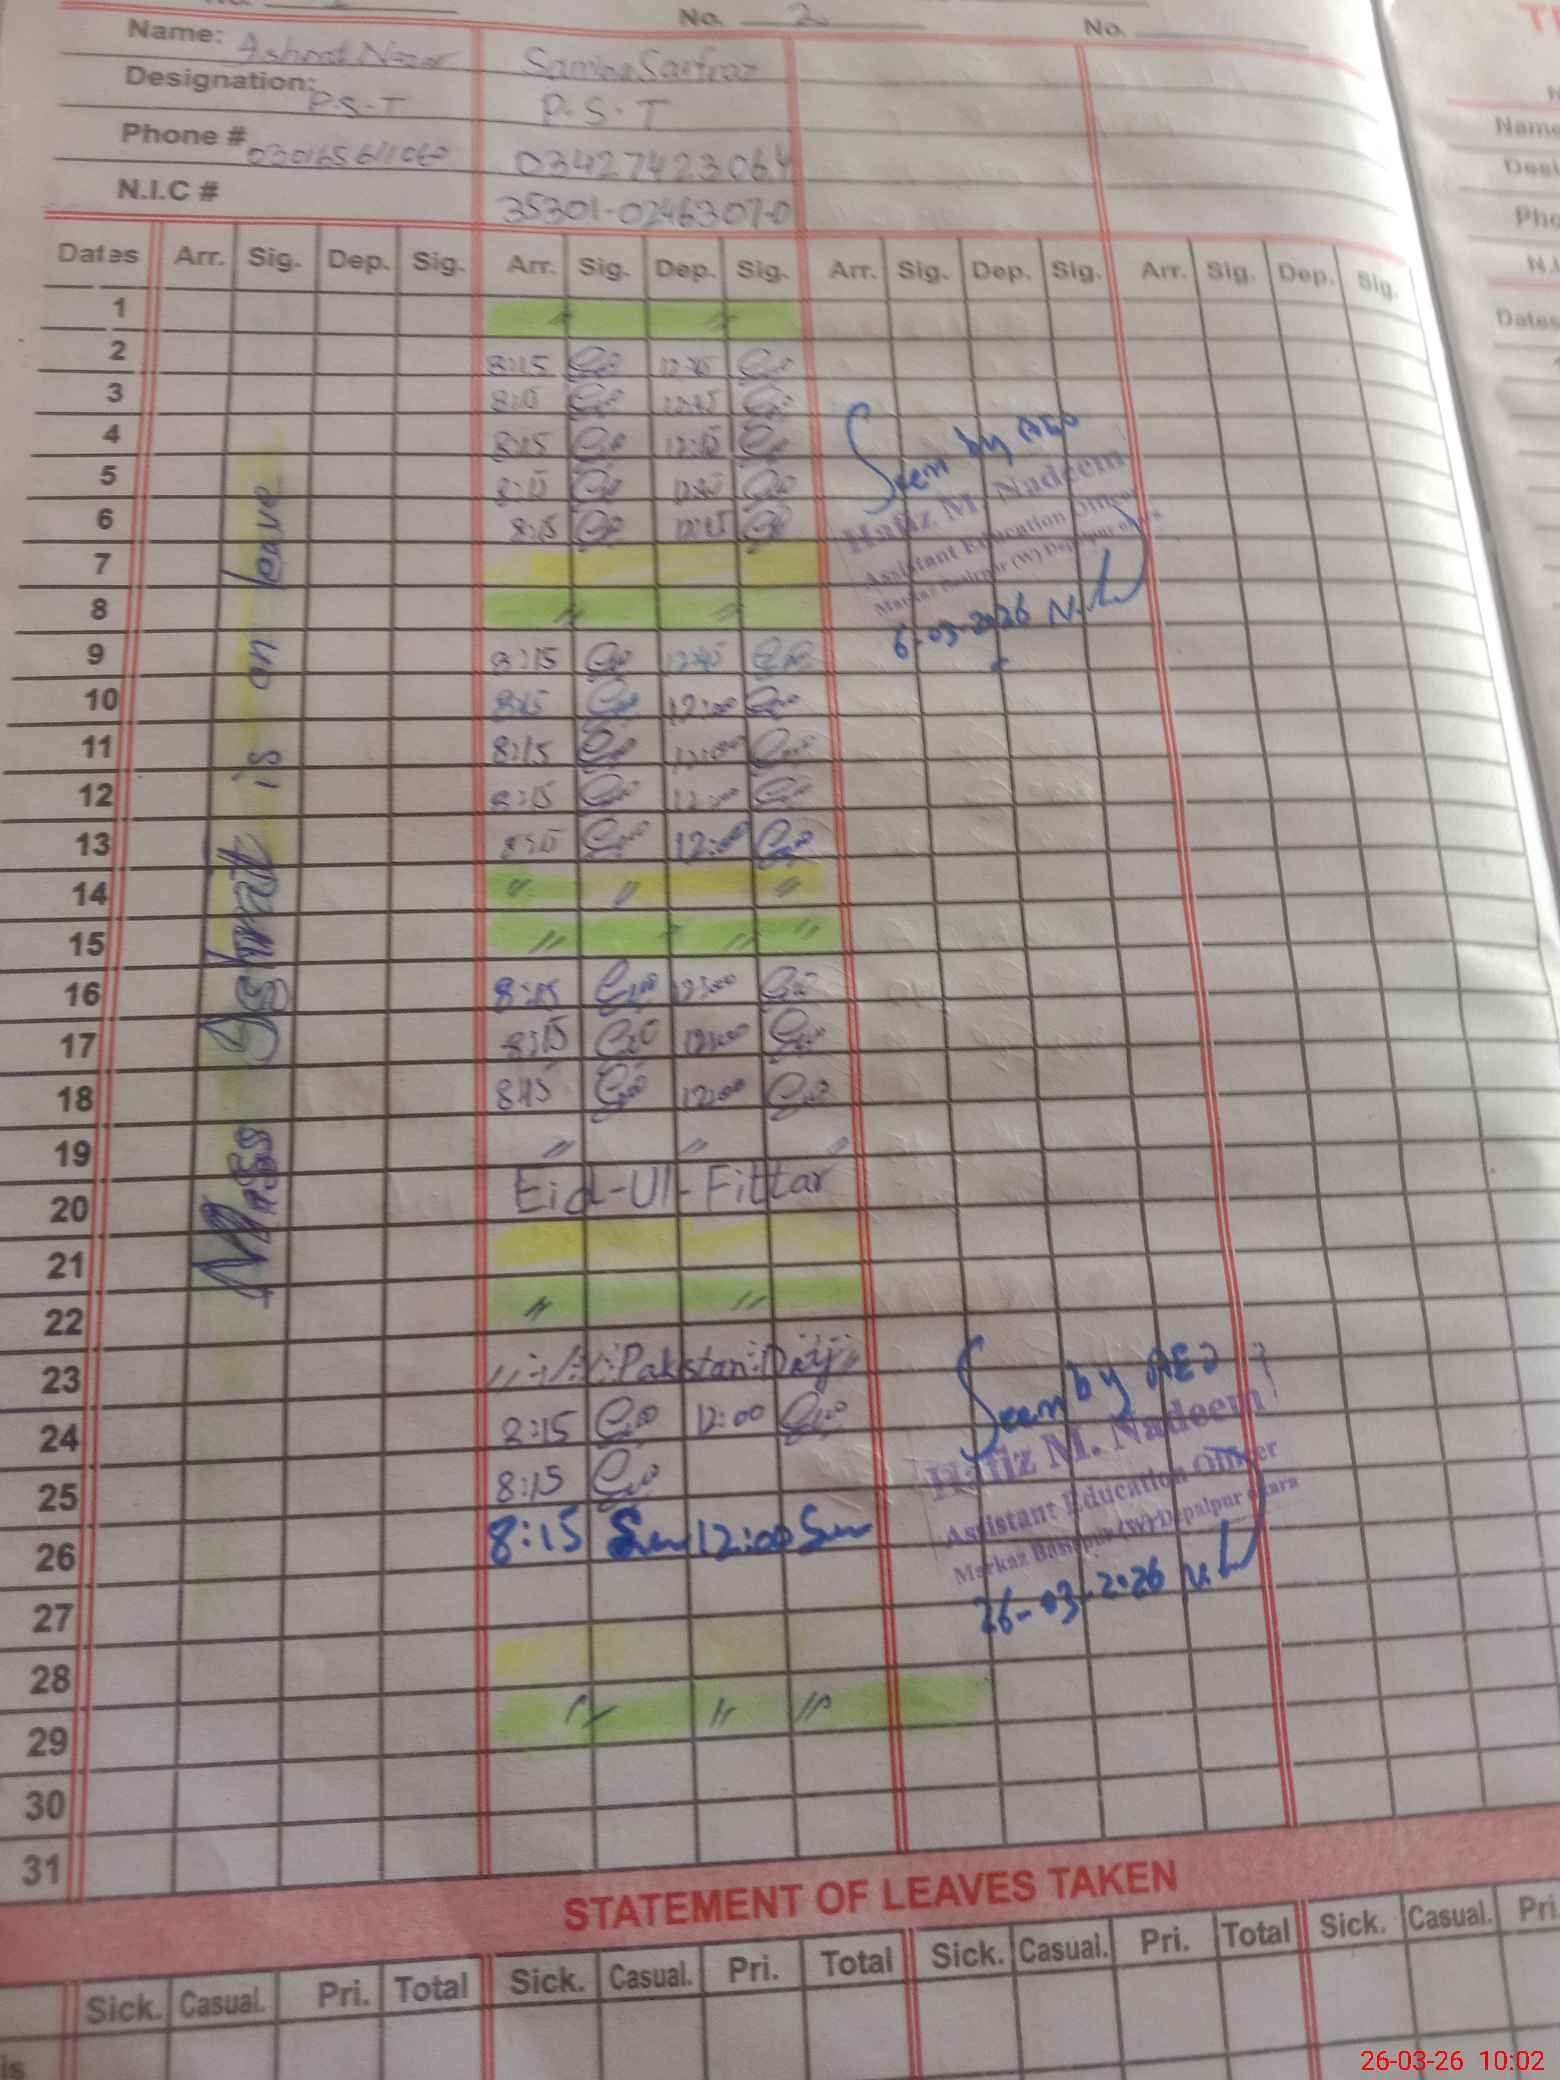 No. 2 No.
Name: Ashmat Nazar Samba Sarfraz
Designation: P.S.T P.S.T
Phone # 03427423064
N.I.C # 35301-0246307-0
Dates Arr. Sig. Dep. Sig. Arr. Sig. Dep. Sig. Arr. Sig. Dep. Sig. Arr. Sig. Dep. Sig.
1 "
2 8:15 12:45
3 8:15 12:45
4 8:15 12:45
5 8:15 12:45
6 8:15 12:45
7
8 "
9 8:15 12:45
10 8:15 12:00
11 8:15 12:00
12 8:15 12:00
13 8:15 12:00
14 "
15 "
16 8:15 12:00
17 8:15 12:00
18 8:15 12:00
19 "
20 Eid-Ul-Fittar
21
22 "
23 Pakistan Day
24 8:15 12:00
25 8:15
26 8:15 12:00
27
28
29 "
30
31
Miss Ishrat is on leave
Seen by AEO
Hafiz M. Nadeem
Assistant Education Officer
Markaz Basirpur (W) Depalpur Okara
6-03-2026
Seen by AEO
Hafiz M. Nadeem
Assistant Education Officer
Markaz Basirpur (W) Depalpur Okara
26-03-2026
STATEMENT OF LEAVES TAKEN
Sick. Casual. Pri. Total Sick. Casual. Pri. Total Sick. Casual. Pri. Total Sick. Casual. Pri.
Name
Dates
26-03-26 10:02